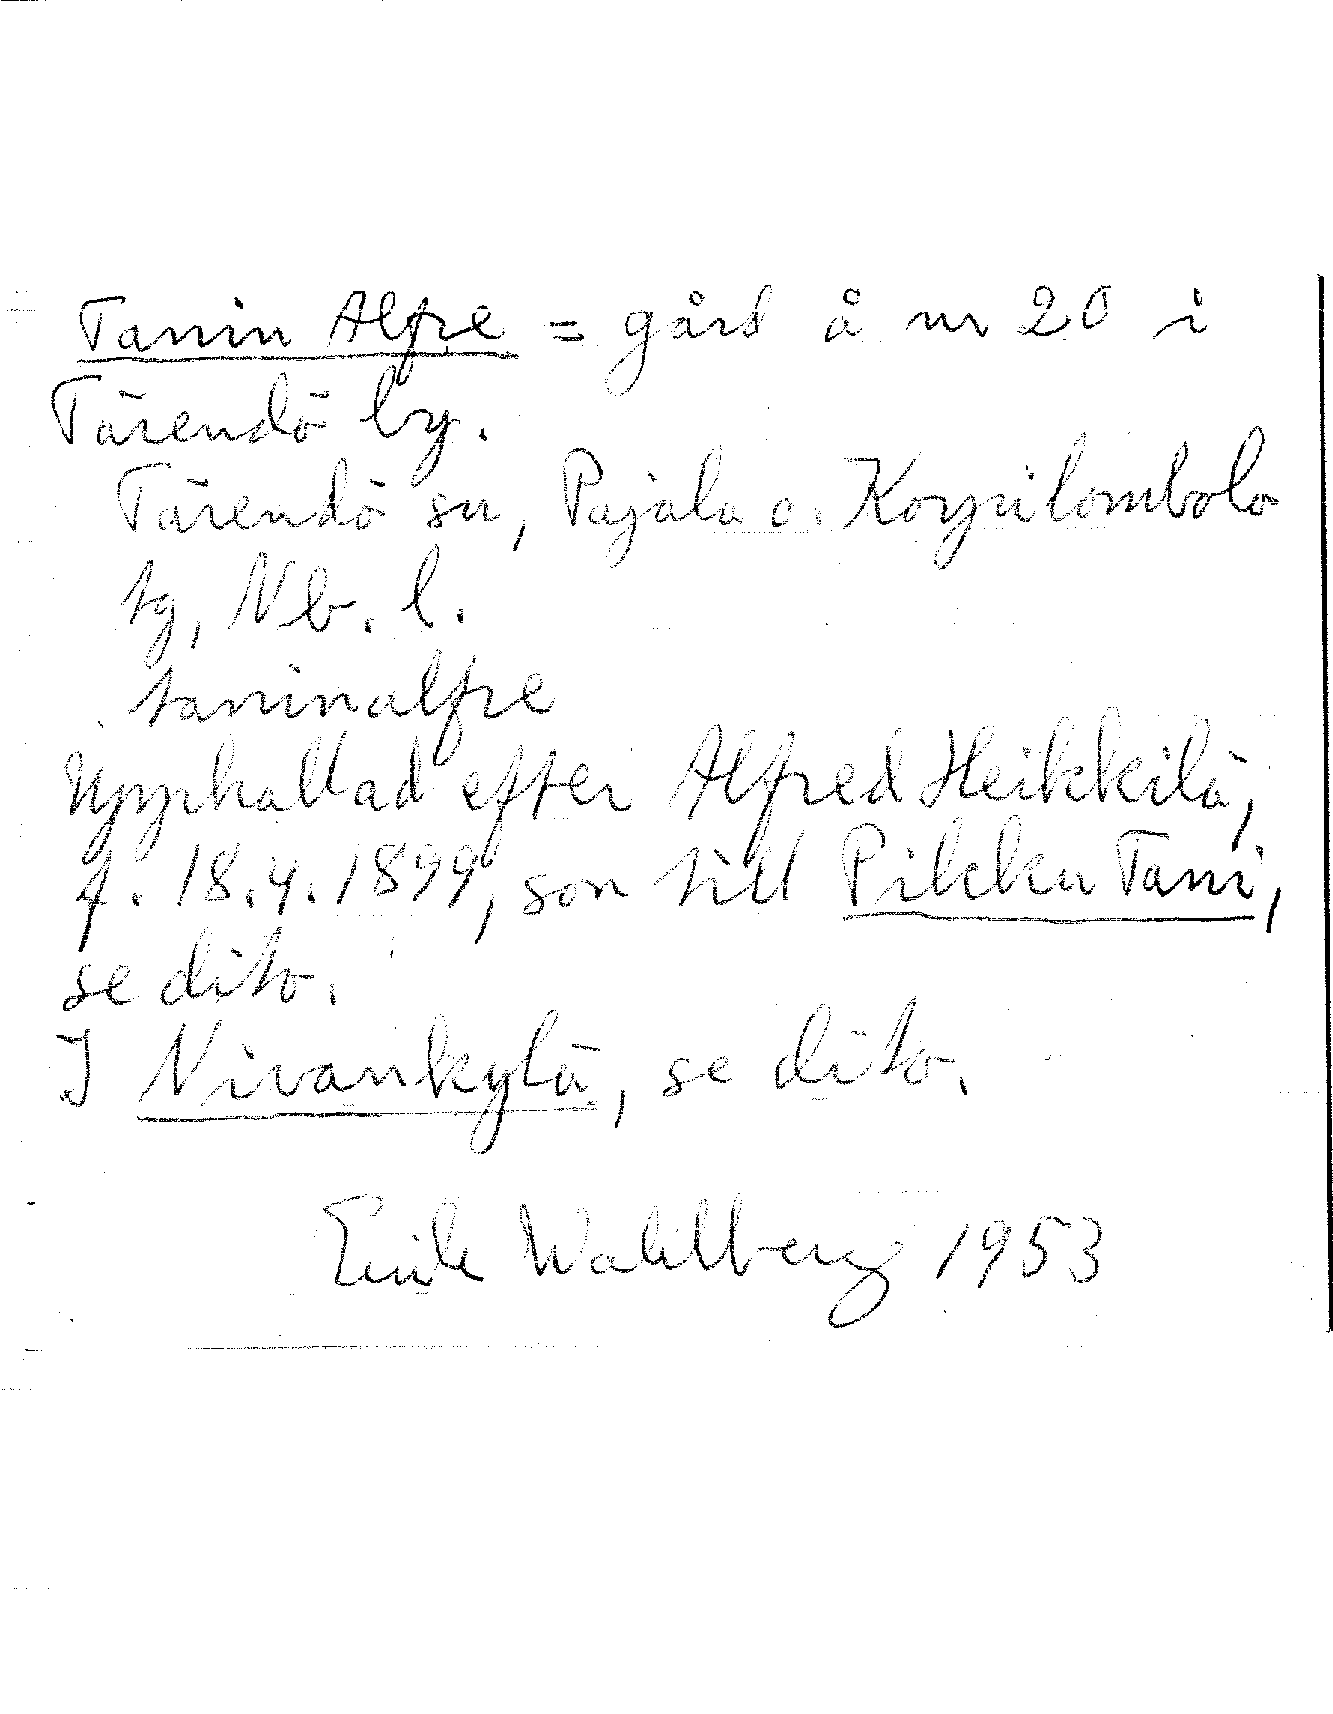 Tanin Alfre = gård å nr 20 i
Tärendö by.
Tärendö sn, Pajala o. Korpilombolo
tg, Nb. l.
taninalfre
Uppkallad efter Alfred Heikkilä,
f. 18.4.1899, son till Pikku Tani,
se dito.
I Nivankylä, se dito.
Erik Wahlberg 1953